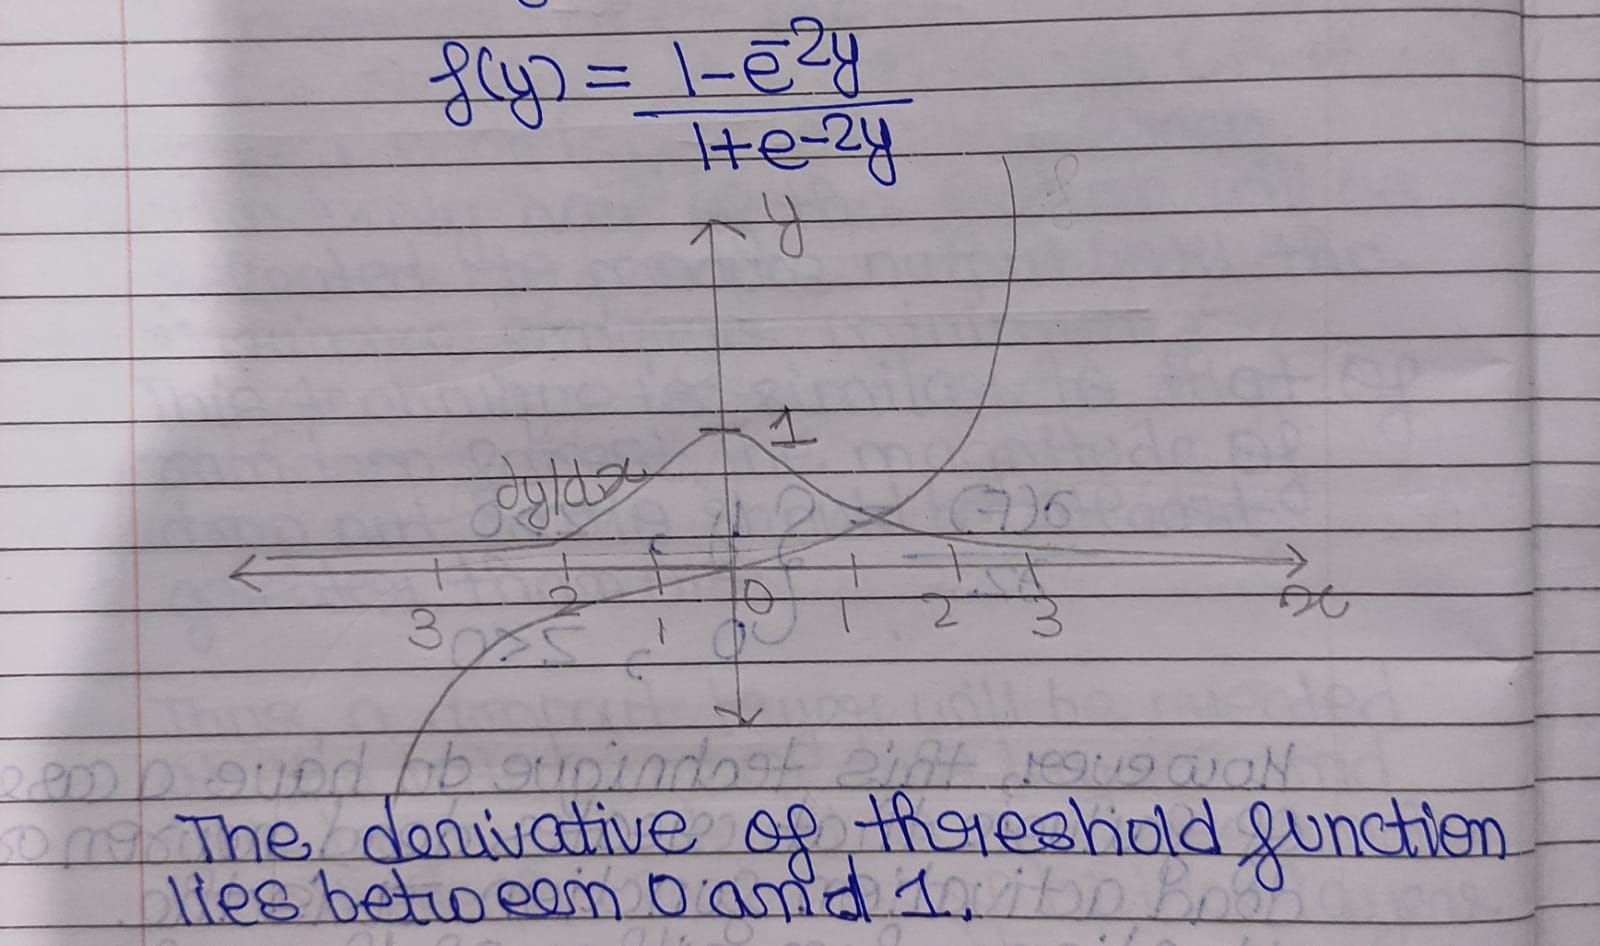 f(y) = 1-e^-2y
1+e-2y
y
1
dy/dx
3 2 1 0 1 2 3
x
The derivative of threshold function
lies between 0 and 1.